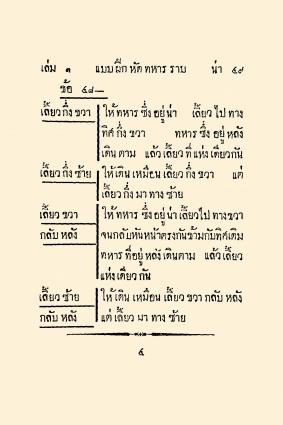 เล่ม ๑ แบบ ฝึก หัด ทหาร ราบ น่า ๔๙
ข้อ ๔๘—
เลี้ยว กึ่ง ขวา ให้ ทหาร ซึ่ง อยู่ น่า เลี้ยว ไป ทาง
ทิศ กึ่ง ขวา ทหาร ซึ่ง อยู่ หลัง
เดิน ตาม แล้ว เลี้ยว ที่ แห่ง เดียว กัน
เลี้ยว กึ่ง ซ้าย ให้ เดิน เหมือน เลี้ยว กึ่ง ขวา แต่
เลี้ยว กึ่ง มา ทาง ซ้าย
เลี้ยว ขวา ให้ ทหาร ซึ่ง อยู่ น่า เลี้ยว ไป ทาง ขวา
กลับ หลัง จนกลับหันหน้าตรงกันข้ามกับทิศเดิม
ทหาร ที่อยู่ หลัง เดินตาม แล้ว เลี้ยว
แห่ง เดียว กัน
เลี้ยว ซ้าย ให้ เดิน เหมือน เลี้ยว ขวา กลับ หลัง
กลับ หลัง แต่ เลี้ยว มา ทาง ซ้าย